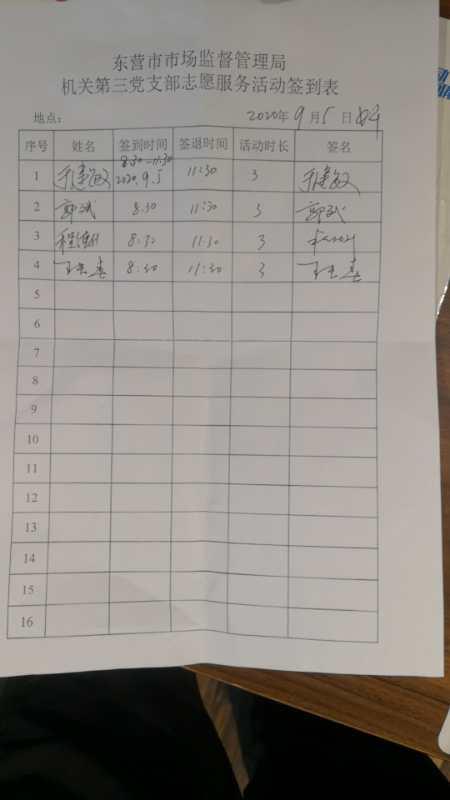 东营市市场监督管理局
机关第三党支部志愿服务活动签到表
地点： 2020年 9 月 5 日
序号 姓名 签到时间 签退时间 活动时长 签名
8:30-11:30
1 2020.9.5 11:30 3
2 郭斌 8:30 11:30 3 郭斌
3 8:30 11:30 3
4 8:30 11:30 3
5
6
7
8
9
10
11
12
13
14
15
16